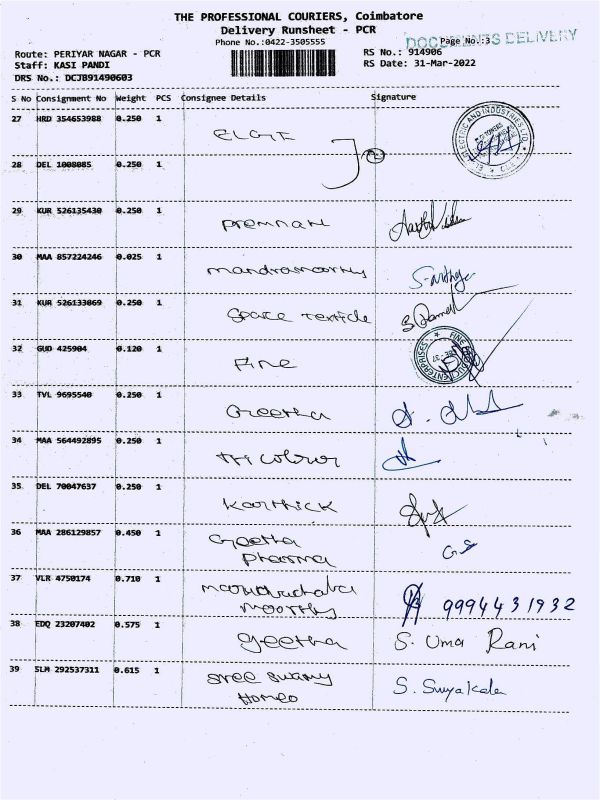 THE PROFESSIONAL COURIERS, Coimbatore
Delivery Runsheet - PCR
DOCUMENTS DELIVERY
Phone No.:0422-3505555
Page No.:3
Route: PERIYAR NAGAR - PCR
RS No.: 914906
Staff: KASI PANDI
RS Date: 31-Mar-2022
DRS No.: DCJB91490603
S No Consignment No Weight PCS Consignee Details Signature
27 HRD 354653988 0.250 1 ELGI
28 DEL 1008085 0.250 1
29 KUR 526135430 0.250 1 Premnath
30 MAA 857224246 0.025 1
31 KUR 526133069 0.250 1 Space Textile
32 GUD 425904 0.120 1 Fine
33 TVL 9695540 0.250 1 Geetha
34 MAA 564492895 0.250 1 Tri colour
35 DEL 70047637 0.250 1 Karthick
36 MAA 286129857 0.450 1 Geetha
Pharma
37 VLR 4750174 0.710 1
moorthy 9994431932
38 EDQ 23207402 0.575 1 geetha S. Uma Rani
39 SLM 292537311 0.615 1 Sree Swamy S. Suyakala
Homeo